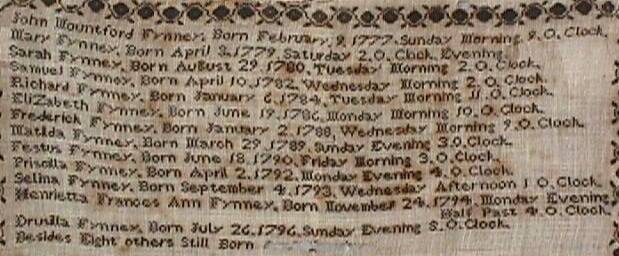 John Mountford Fynney, Born February, 9, 1777, Sunday Morning 9, O, Clock.
Mary Fynney, Born April 3, 1779, Saturday 2, O, Clock, Evening.
Sarah Fynney, Born August 29, 1780, Tuesday Morning 2, O, Clock.
Samuel Fynney, Born April 10, 1782, Wednesday Morning 2, O, Clock.
Richard Fynney, Born January 6, 1784, Tuesday Morning 11, O, Clock.
Elizabeth Fynney, Born June 19, 1786, Monday Morning 10, O, Clock.
Frederick Fynney, Born January 2, 1788, Wednesday Morning 9, O, Clock.
Matilda Fynney, Born March 29, 1789, Sunday Evening 3, O, Clock.
Festus Fynney, Born June 18, 1790, Friday Morning 3, O, Clock.
Priscilla Fynney, Born April 2, 1792, Monday Evening 4, O, Clock.
Selina Fynney, Born September 4, 1793, Wednesday Afternoon 1 O, Clock.
Henrietta Frances Ann Fynney, Born November 24, 1794, Monday Evening
Half Past 4, O, Clock.
Drusilla Fynney, Born July 26, 1796, Sunday Evening 8, O, Clock.
Besides Eight others Still Born